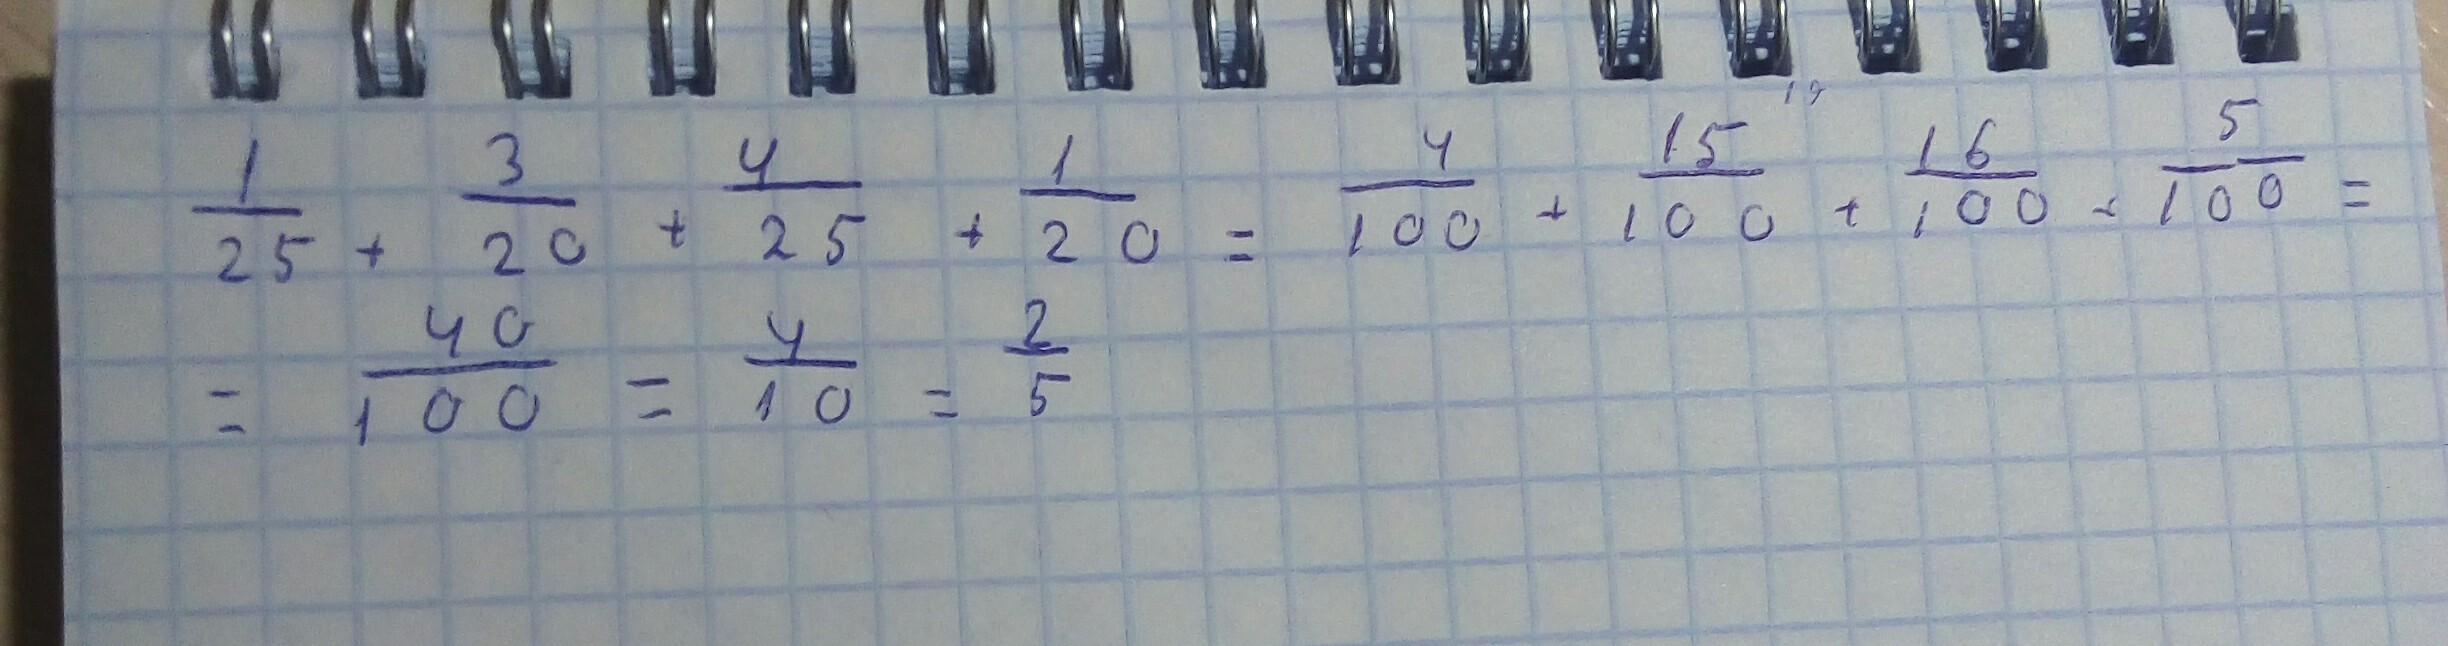 1/25 + 3/20 + 4/25 + 1/20 = 4/100 + 15/100 + 16/100 + 5/100 =
= 40/100 = 4/10 = 2/5